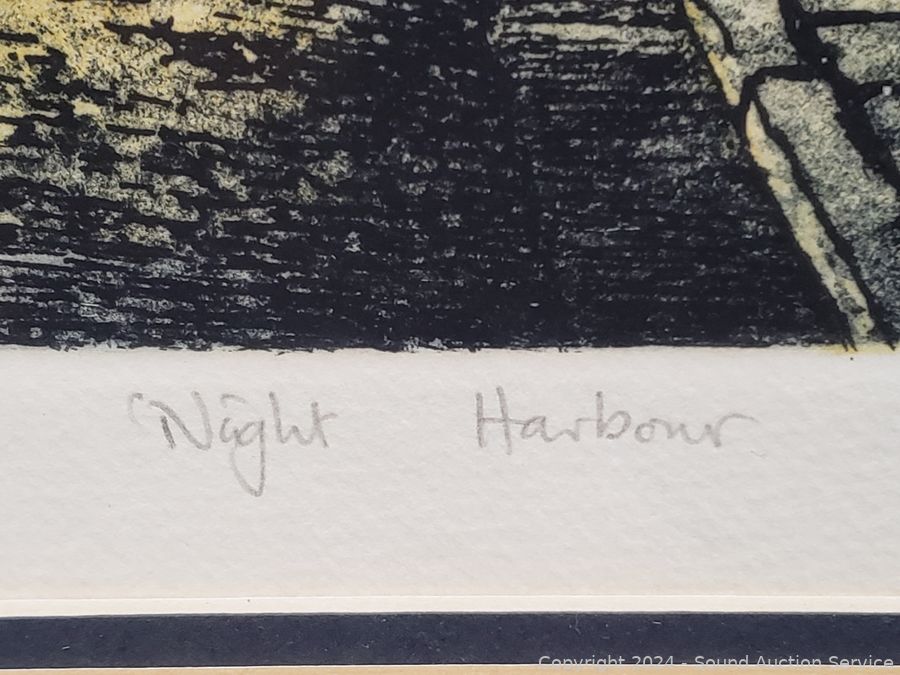 'Night Harbour
Copyright 2024 - Sound Auction Service